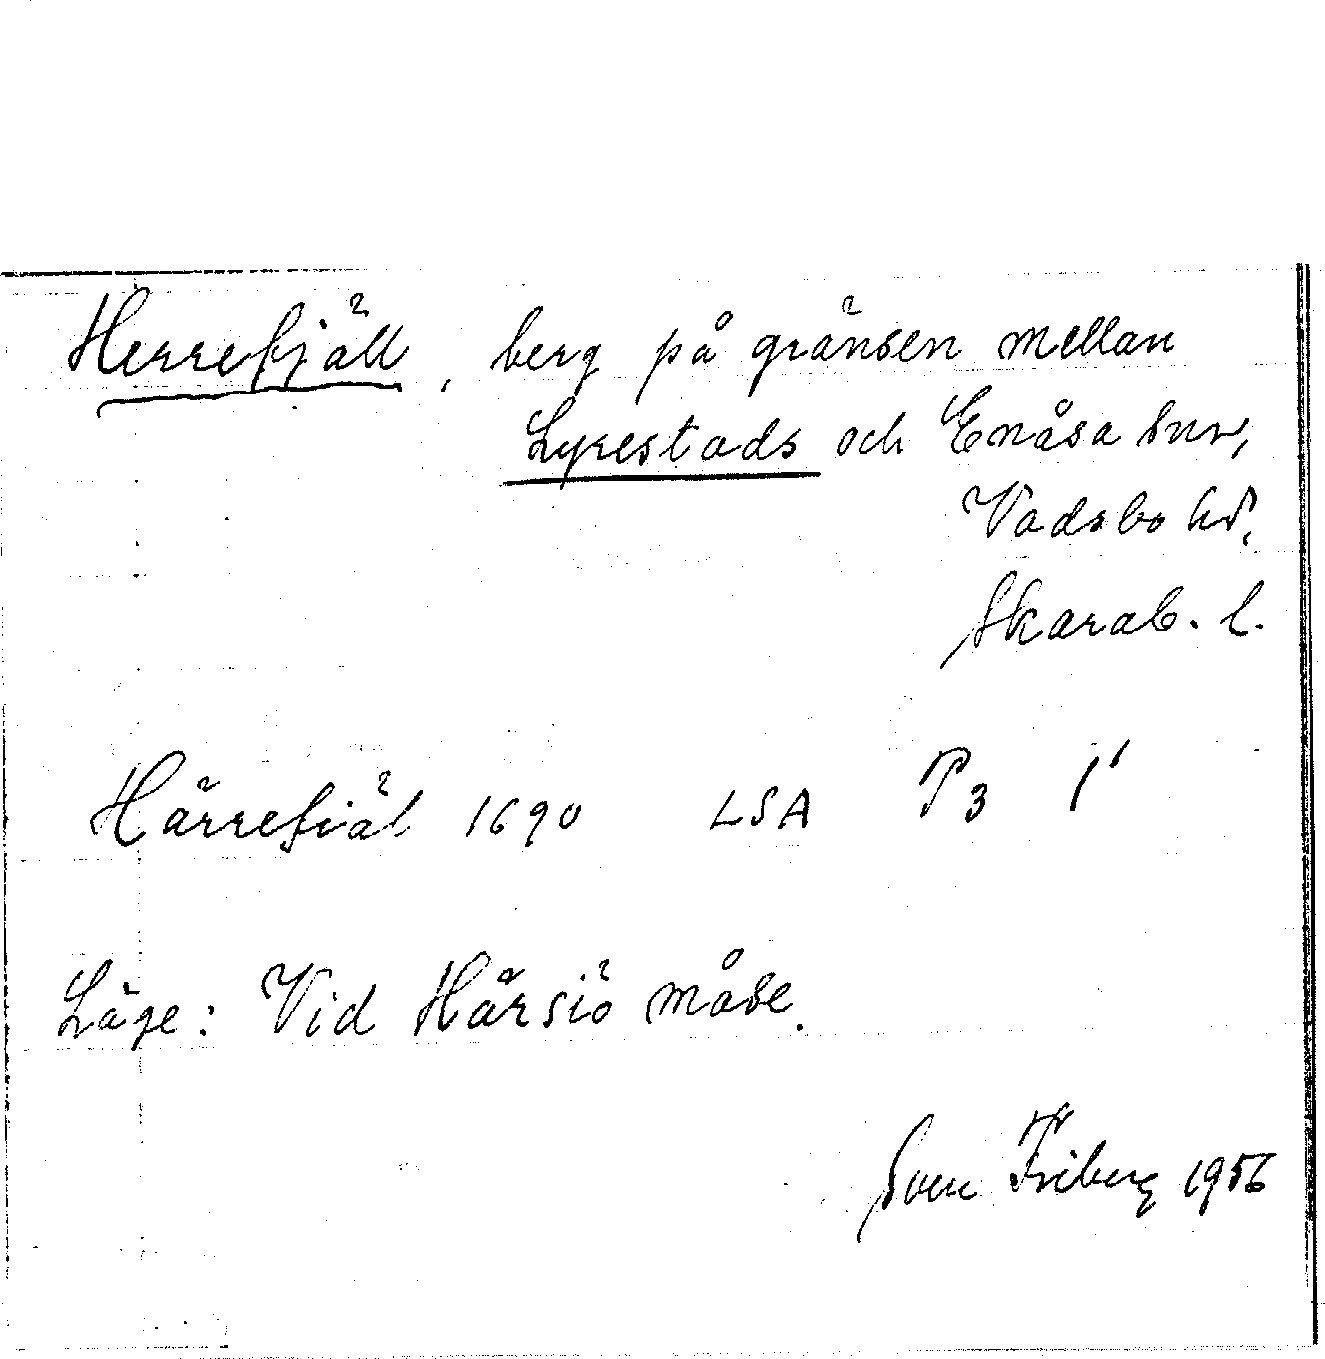 Herrefjäll, berg på gränsen mellan
Lyrestads och Enåsa snr,
Vadsbo hd,
Skarab. l.
Härrefiäl 1690 LSA P3 1'
Läge: Vid Härsiö måse.
Sven Friberg 1956